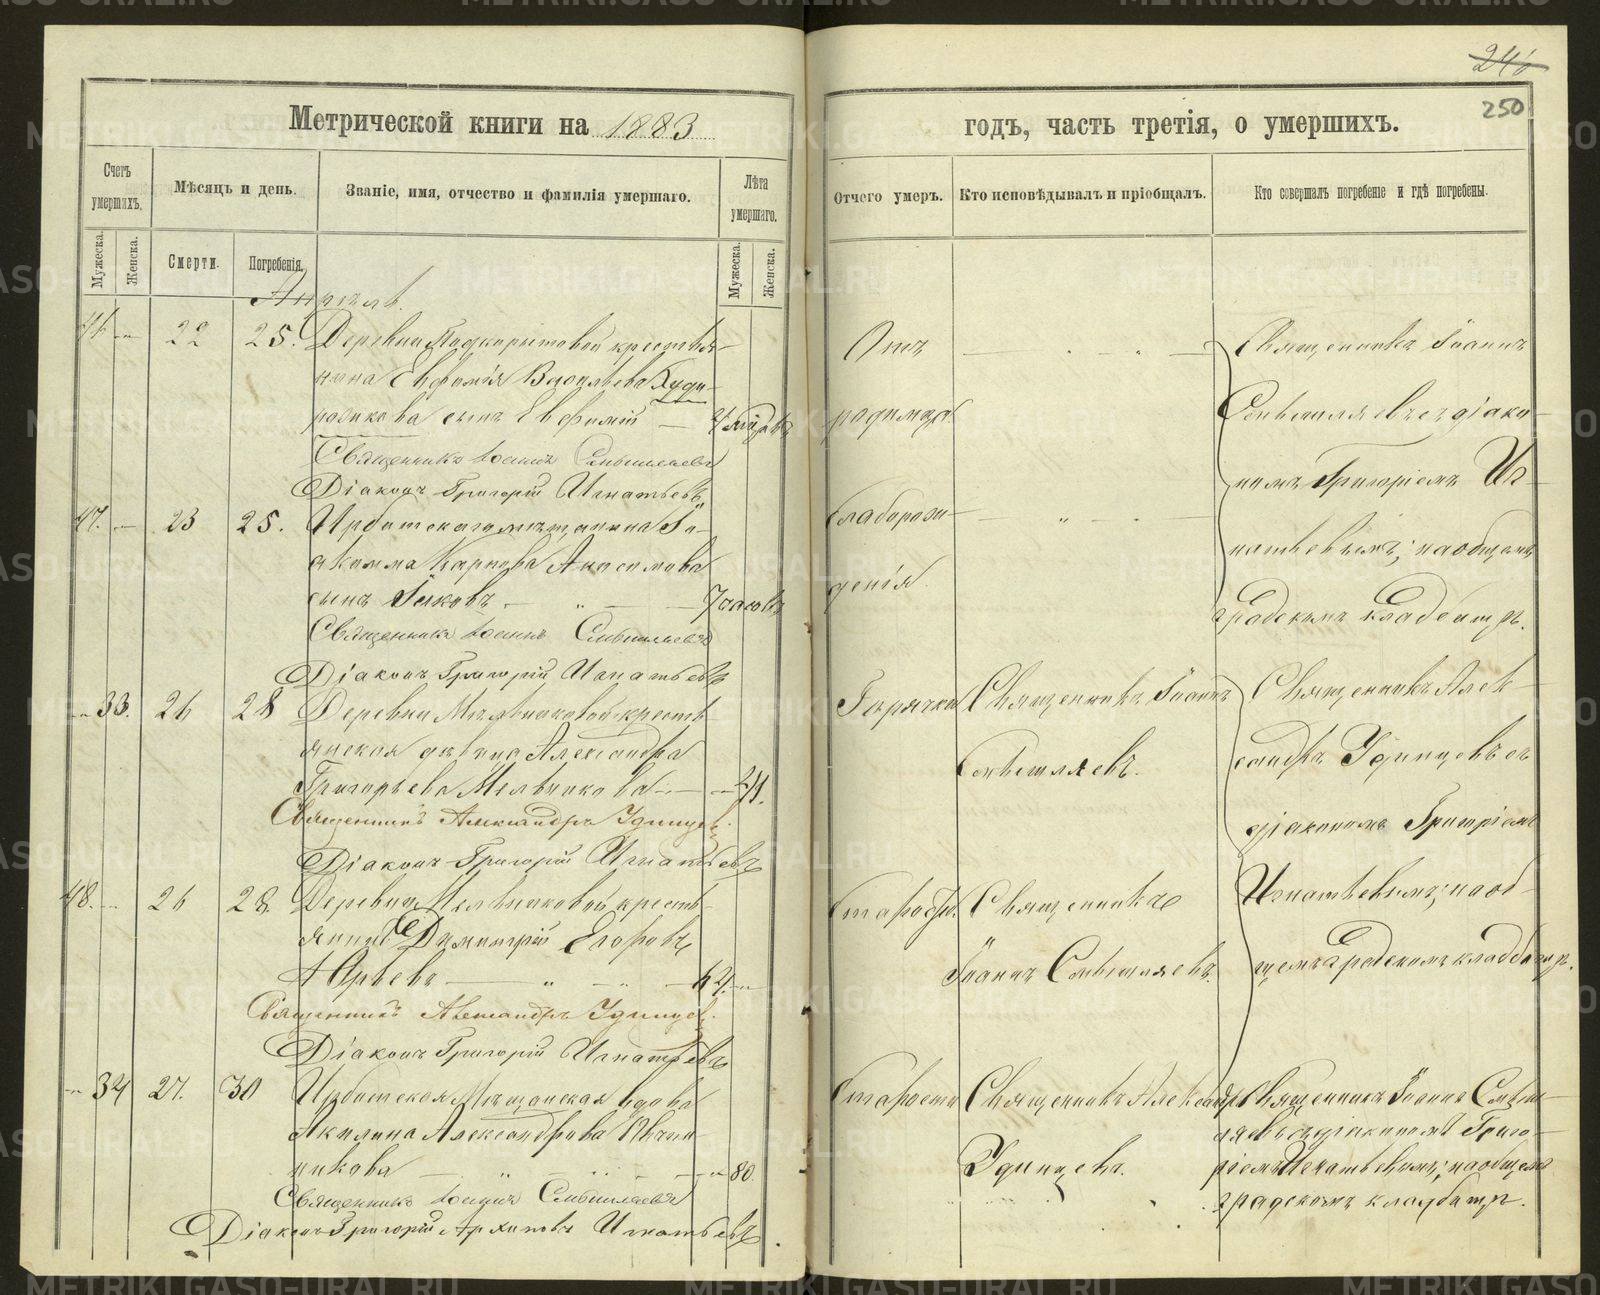 246
250
Метрической книги на 1883
годъ, часть третія, о умершихъ.
Счетъ умершихъ.
Мѣсяцъ и день.
Званіе, имя, отчество и фамилія умершаго.
Лѣта умершаго.
Отчего умеръ.
Кто исповѣдывалъ и пріобщалъ.
Кто совершалъ погребеніе и гдѣ погребены.
Мужеска.
Женска.
Смерти.
Погребенія.
Мужеска.
Женска.
Апрѣль.
22 25. Деревни Подкорытовой крестья-
нина Евфимія Васильева
сынъ Евфимій
Священникъ Іоаннъ Смышляевъ
Діаконъ Григорій Игнатьевъ
Отъ
родимца.
Священникъ Іоаннъ
Смышляевъ съ діако-
номъ Григоріемъ Иг-
натьевымъ; на общемъ
градскомъ кладбищѣ.
47. 23 25. Ирбитскаго мѣщанина Іо-
акима Карпова Анисимова
сынъ Іаковъ 7 часовъ
Священникъ Іоаннъ Смышляевъ
Діаконъ Григорій Игнатьевъ
Слаборож-
денія.
33. 26 28 Деревни Мельниковой кресть-
янская дѣвица Александра
Григорьева Мельникова
Священникъ Александръ Удинцевъ
Діаконъ Григорій Игнатьевъ
Горячка
Священникъ Іоаннъ
Смышляевъ.
Священникъ Алек-
сандръ Удинцевъ съ
діакономъ Григоріемъ
Игнатьевымъ; на об-
щемъ градскомъ кладбищѣ.
48. 26 28. Деревни Мельниковой кресть-
янинъ Димитрій Егоровъ
Юрьевъ 64.
Священникъ Александръ Удинцевъ.
Діаконъ Григорій Игнатьевъ
Старости.
Священникъ
Іоаннъ Смышляевъ.
34 27. 30 Ирбитская мѣщанская вдова
Акилина Александрова Овчин-
никова 80.
Священникъ Іоаннъ Смышляевъ
Діаконъ Григорій Архиповъ Игнатьевъ
Старости
Священникъ Александръ
Удинцевъ.
Священникъ Іоаннъ Смыш-
ляевъ съ діакономъ Григо-
ріемъ Игнатьевымъ; на общемъ
градскомъ кладбищѣ.
METRIKI.GASO-URAL.RU